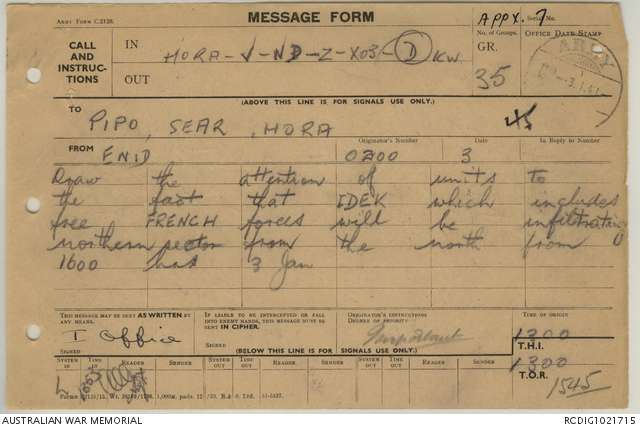 ARMY FORM C.2128.
MESSAGE FORM
APPX. 7
Serial No.
CALL AND INSTRUC- TIONS
IN
HORA-V-ND-Z-X03-D KW.
No. of Groups.
GR.
35
OFFICE DATE STAMP
ARMY
OUT
(ABOVE THIS LINE IS FOR SIGNALS USE ONLY.)
TO
PIPO, SEAR, HORA
FROM
ENID
Originator's Number
0200
Date
3
In Reply to Number
Draw the attention of units to
the fact that IDEK which includes
free FRENCH forces will be infiltrating
northern sector from the north from
1600 hrs 3 Jan
THIS MESSAGE MAY BE SENT AS WRITTEN BY ANY MEANS.
I Office
SIGNED
IF LIABLE TO BE INTERCEPTED OR FALL INTO ENEMY HANDS, THIS MESSAGE MUST BE SENT IN CIPHER.
SIGNED
ORIGINATOR'S INSTRUCTIONS
DEGREE OF PRIORITY
Important
TIME OF ORIGIN
1200
(BELOW THIS LINE IS FOR SIGNALS USE ONLY.)
T.H.I.
1300
SYSTEM IN
TIME IN
READER
SENDER
SYSTEM OUT
TIME OUT
READER
SENDER
SYSTEM OUT
TIME OUT
READER
SENDER
T.O.R.
1545
L
AUSTRALIAN WAR MEMORIAL
RCDIG1021715